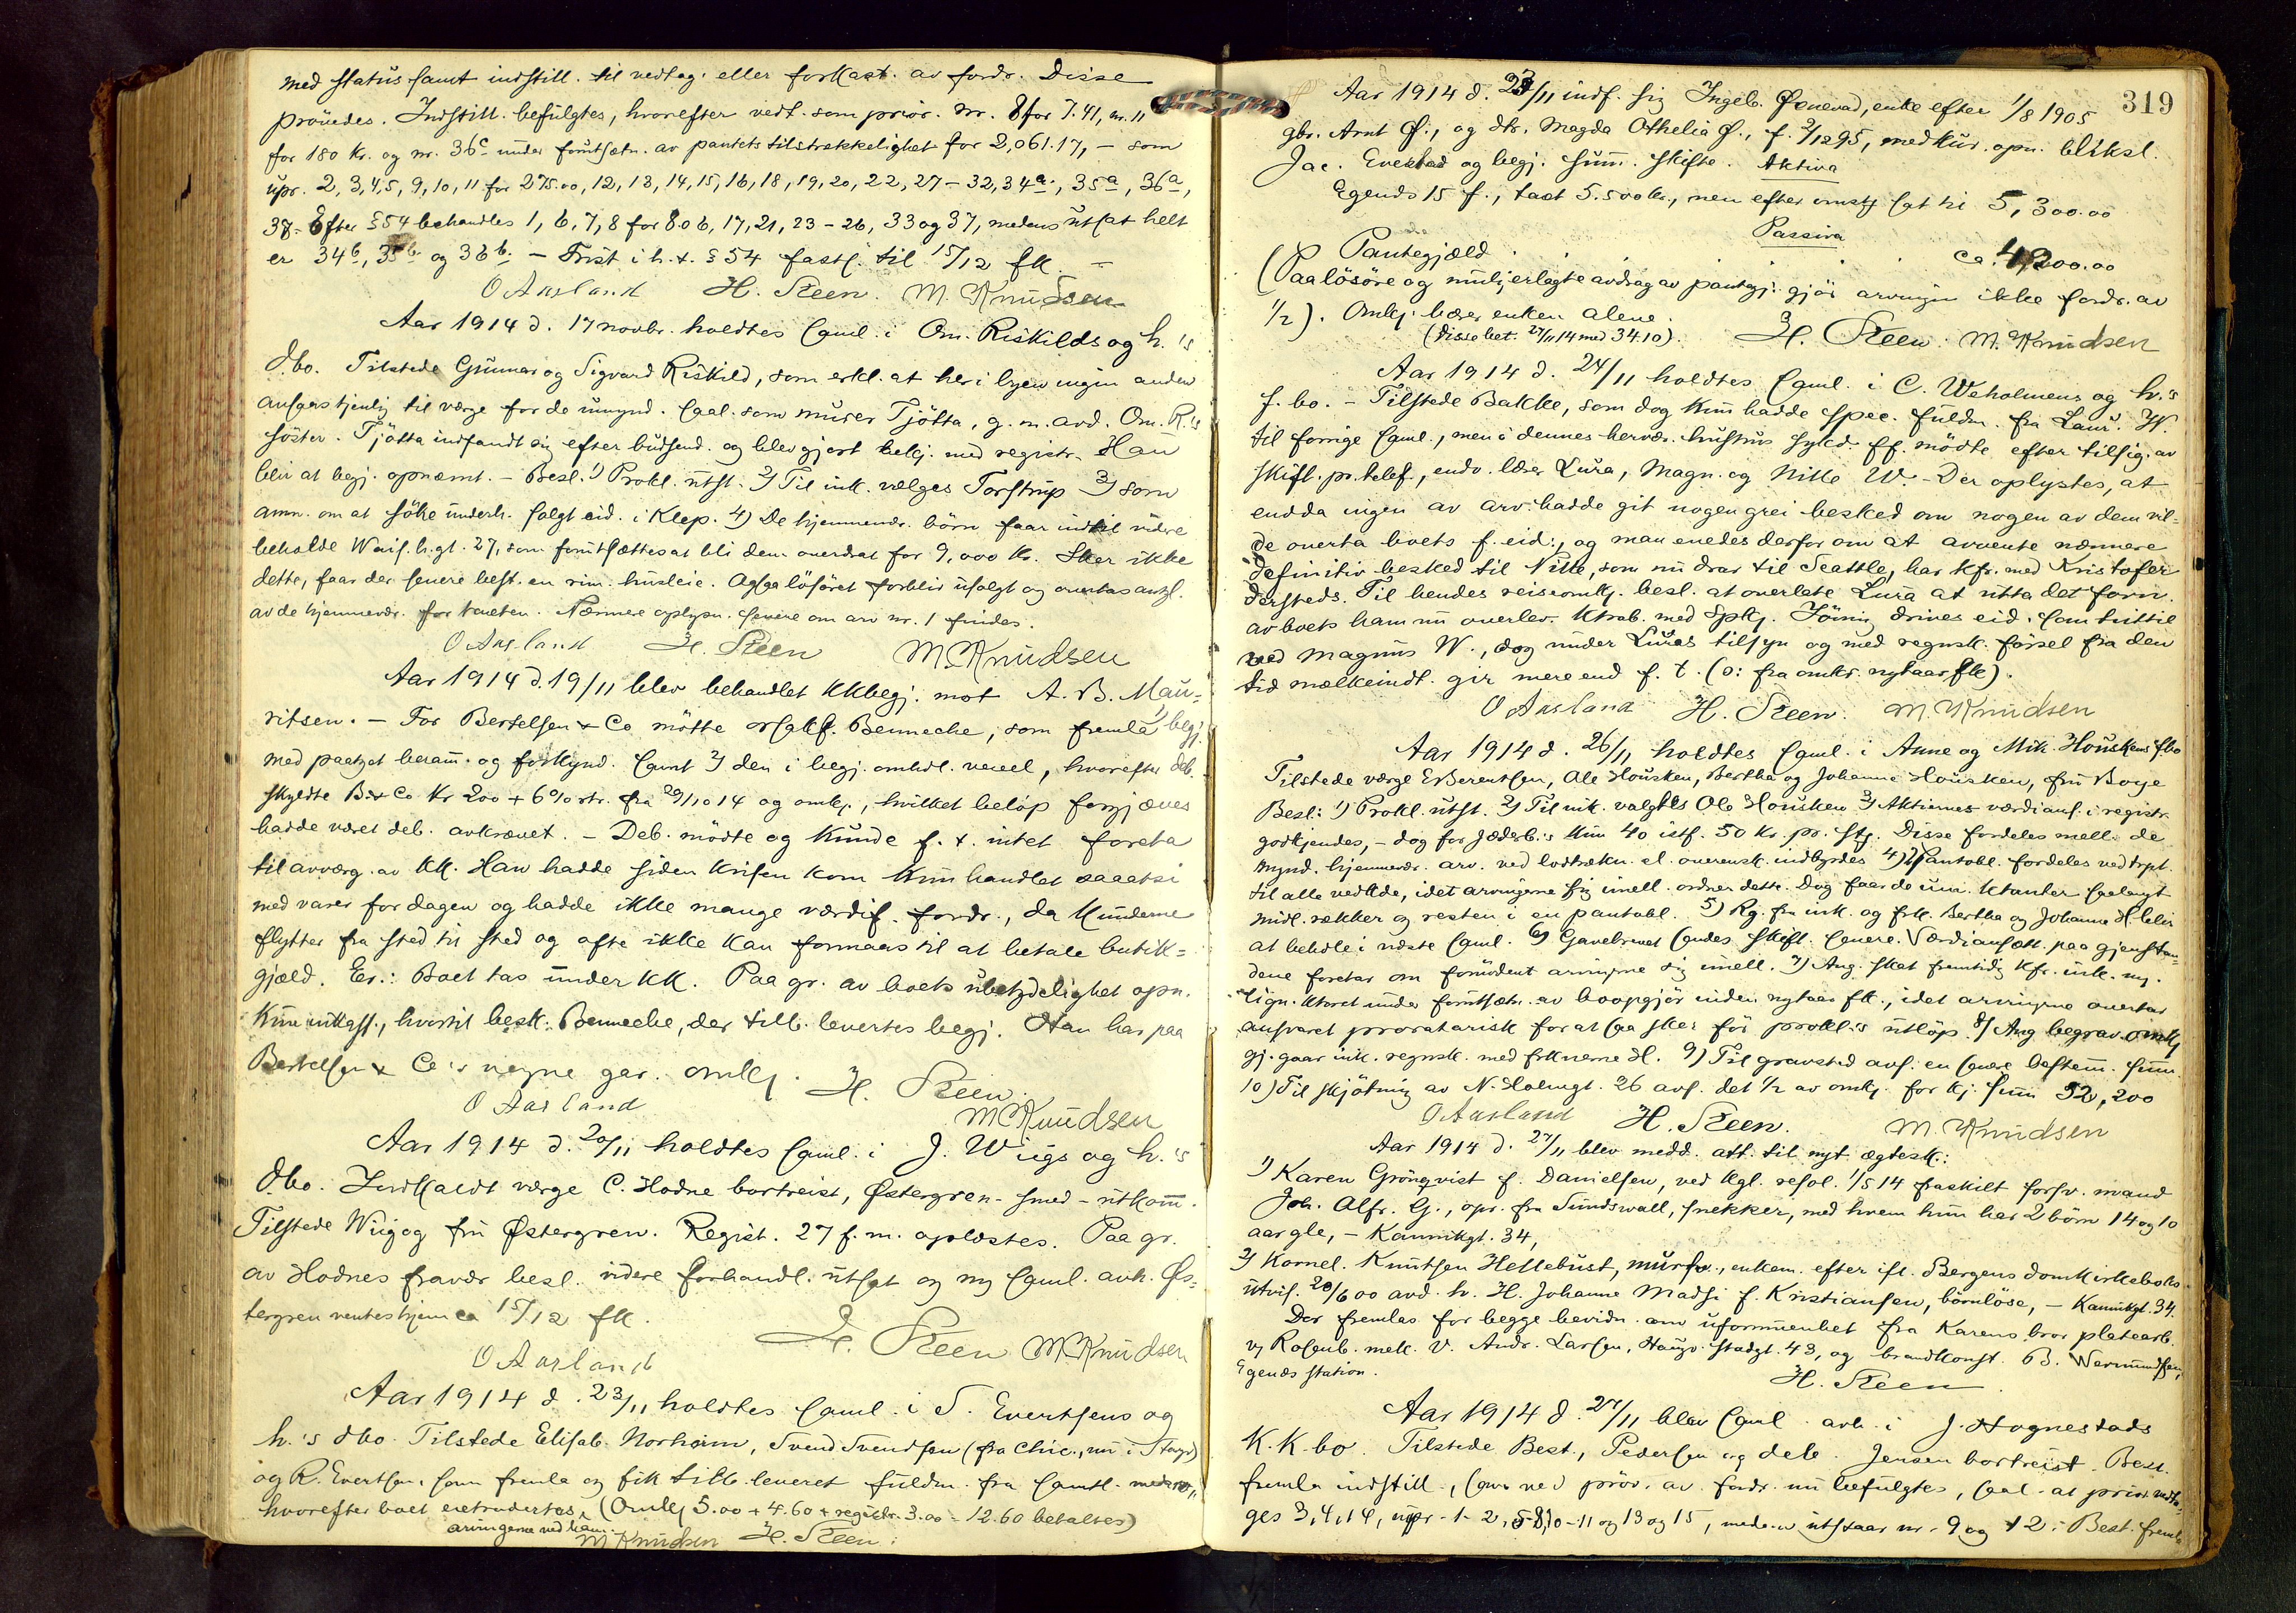 med status samt indstill. til vedtag. eller forkast. av fordr. Disse
prövedes. Indstill. befulgtes, hvorefter vedt. som prior. nr. 8 for 7.41, nr. 11
for 180 kr. og nr. 36c under forutsætn. av pantets tilstrækkelighet for 2,061.17, – som
upr. 2, 3, 4, 5, 9, 10, 11 for 275.00, 12, 13, 14, 15, 16, 18, 19, 20, 22, 27 – 32, 34a, 35a, 36a,
38. Efter § 54 behandles 1, 6, 7, 8 for 806, 17, 21, 23 – 26, 33 og 37, medens utsat helt
er 34b, 35b og 36b. – Frist i h.t. § 54 fasts. til 15/12 fk. –
O Aasland H. Steen. M. Knudsen
Aar 1914 d. 17 novbr. holdtes saml. i Om. Riskilds og h.'s
dbo. Tilstede Gunnar og Sigvard Riskild, som erkl. at her i byen ingen anden
ansaas tjenlig til værge for de umynd. saal. som murer Tjötta, g. m. avd. Om. R.'s
söster. Tjötta indfandt sig efter budsend. og blev gjort bekj. med registr. Han
blir at begj. opnæmt. – Besl. 1) Prokl. utst. 2) Til ink. vælges Torstrup 3) som
anm. om at söke underh. solgt eid. i Klep. 4) De hjemmevær. börn faar indtil videre
beholde Wais.h.gt. 27, som forutsættes at bli dem overdrat for 9,000 kr. Sker ikke
dette, faar der senere best. en rim. husleie. Ogsaa lösöret forblir usolgt og overtas
av de hjemmevær. for taxten. Nærmere oplysn. senere om arv nr. 1 findes.
O Aasland H. Steen M. Knudsen
Aar 1914 d. 19/11 blev behandlet KKbegj. mot A. B. Mau-
ritsen. – For Bertelsen & Co mötte orsakf. Benneche, som fremla 1) begj.
med paategt beram. og forkynd. samt 2) den i begj. omhdl. vexel, hvorefter deb.
skyldte B. & Co Kr 200 + 6% rtr. fra 29/10 14 og omkj., hvilket belöp forgjæves
hadde været deb. avkrævet. – Deb. mödte og kunde f. t. intet foreta
til avværg. av KK. Han hadde siden krisen kom kun handlet
med varer for dagen og hadde ikke mange værdif. fordr., da kunderne
flytter fra sted til sted og ofte ikke kan formaaes til at betale butik-
gjæld. Er.: Boet tas under KK. Paa gr. av boets ubetydelighet opn.
kun inkass., hvortil besk. Benneche, der tillb. levertes begj. Han har paa
Bertelsen & Co's vegne gar. omkj. H. Steen.
O Aasland M Knudsen
Aar 1914 d. 20/11 holdtes saml. i J. Wiigs og h.'s
dbo. Indkaldt værge C. Hodne bortreist, Østergren – smed – utkom.
Tilstede Wiig og fru Østergren. Regist. 27 f. m. oplæstes. Paa gr.
av Hodnes fravær besl. videre forhandl. utsat og ny saml. avh. Øs-
tergren ventes hjem ca 15/12 fk.
O Aasland H. Steen M. Knudsen
Aar 1914 d. 23/11 holdtes saml. i S. Evertsens og
h.'s dbo. Tilstede Elisab. Norheim, Svend Svendsen (fra Chic., nu i Stavgr)
og R. Evertsen, som fremla og fik tillb. leveret fuldm. fra samtl.
hvorefter boet extradertes, (Omkj 5.00 + 4.60 + registr. 3.00 = 12.60 betaltes)
arvingerne ved ham.
M Knudsen H. Steen.
319
Aar 1914 d. 23/11 indf. sig Ingeb. Øxnevad, enke efter 1/8 1905
gbr. Arnt Ø., og dtr. Magda Othelia Ø., f. 2/12 95, med kur. opn. blikksl.
Jac. Evestad og begj. sum. skifte. Aktiva
Egends 15 f., taxt 5.500 kr., men efter omstj sat til 5,300.00
Passiva
Pantegjæld . . . . . ca. 4,200.00
(Paa lösöre og mulig erlagte avdrag av pantegj. gjör arvingen ikke fordr. av
1/2). Omkj. bærer enken alene.
(Disse bet. 27/11 14 med 34.10). H. Steen. M. Knudsen
Aar 1914 d. 24/11 holdtes saml. i C. Weholmens og h.'s
f. bo. – Tilstede Bakke, som dog kun hadde spec. fuldm. fra Laur. W.
til forrige saml., men i dennes hervær. hustrus sykd. ff. mödte efter tilsig. av
skift. pr. telef., endv. lærer Lura, Magn. og Nille W. – Der oplystes, at
endda ingen av arv. hadde git nogen grei besked om nogen av dem vil-
de overta boets f. eid., og man enedes derfor om at avvente nærmere
definitiv besked til Nille, som nu drar til Seattle, har kfr. med Kristofer
dersteds. Til hendes reiseomkj. besl. at overlate Lura at utta det forn.
av boets ham nu overlev. ktrab. med Spkj. Förning drives eid. som hittil
ved Magnus W., dog under Luras tilsyn og med regnsk. försel fra den
tid mælkeindt. gir mere end f. t. (o: fra omkr. nytaar fk).
O Aasland H. Steen. M. Knudsen
Aar 1914 d. 26/11 holdtes saml. i Anne og Mik. Houskens fbo
Tilstede værge E Berentsen, Ole Housken, Bertha og Johanne Housken, fru Boye
Besl: 1) Prokl. utst. 2) Til ink. valgtes Ole Housken 3) Aktiernes værdians. i registr
godkjendes, – dog for Jæderb.'s kun 40 istf. 50 kr. pr. stj. Disse fordeles mell. de
mynd. hjemmevær. arv. ved lodtrækn. el. overensk. indbyrdes 4) Pantobl. fordeles ved
til alle vedkde, idet arvingerne sig imell. ordner dette. Dog faar de um. ktanter saalangt
midl. rækker og resten i en pantobl. 5) Rg. fra ink. og frk. Bertha og Johanne H. blir
at behdle i næste saml. 6) Gavebrevet sendes skift. senere. Værdiansætt. paa gjenstan-
dene foretar om fornödent arvingerne sig imell. 7) Ang. skat fremtidig kfr. ink.
lign. ktoret under forutsætn. av boopgjör inden nytaar fk., idet arvingerne overtar
ansvaret proratarisk for at saa sker för prokl.'s utlöp. 8) Ang begrav. omkj
gj. gaar ink. regnsk. med frknerne H. 9) Til gravsted avs. en senere bestem. sum.
10) Til skjötning av N. Holmgt. 26 avs. det 1/2 av omkj. for kj. sum 52,200
O Aasland H. Steen. M. Knudsen
Aar 1914 d. 27/11 blev medd. att. til nyt ægtesk.:
1) Karen Grönqvist f. Danielsen, ved kgl. resol. 1/5 14 fraskilt forsv. mand
Joh. Alfr. G., opr. fra Sundswall, snekker, med hvem hun har 2 börn 14 og 10
aar gle, – Kannikgt. 34,
2) Kornel. Knutsen Hellebust, mursv., enkem. efter ifl. Bergens domkirkeboks
utvis. 20/6 00 avd. h. H. Johanne Madsi f. Kristiansen, börnlöse, – Kannikgt. 34.
Der fremlas for begge bevidn. om uformuenhet fra Karens bror platearb.
v/ Rosenb. mek. V. Andr. Larsen, Haugv. stadgt. 43, og brandkonst. B. Wermundsen,
Egenæs station. H. Steen.
Aar 1914 d. 27/11 blev saml. avh. i J. Hognestads
K. K. bo. Tilstede Best., Pedersen og deb. Jensen bortreist. Best.
fremla indstill., som ved pröv. av fordr. nu befulgtes, saal. at prior. vedto-
ges 3, 4, 14, upr. 1 – 2, 5-8, 10 – 11 og 13 og 15, medens utstaar nr. 9 og 12. Best. freml.